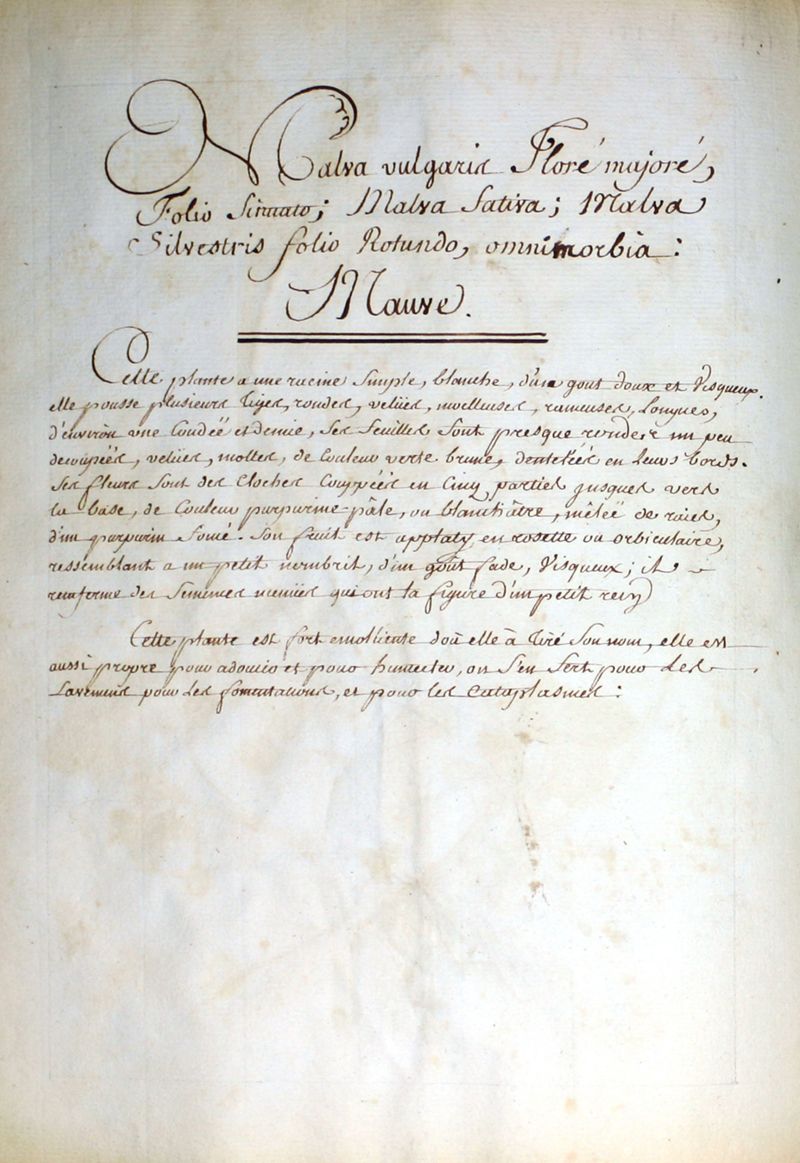 Malva vulgaris Floré majoré,
Folio Sinuato; Malva Sativa; Malva
Silvestris folio Rotundo, omnimorbia:
Mauve.
Cette plante a une racine Simple, blanche, d'un gout doux et Visqueux.
elle pousse plusieurs Tiges, rondes, velües, moelleuses, rameuses, Longues,
d'environ une Coudéé et demie, Ses feuilles Sont presque rondes un peu
decoupéés, velües, molles, de Couleur verte brune, denteléés en leurs bords.
Ses fleurs Sont des Cloches Coupéés en Cinq parties jusques vers
la base, de Couleur purpurine-pâle, ou blanchâtre, mêléé de raies,
d'un purpurin foncé. Son fruit est applaty en rosette ou orbiculaire,
ressemblant a un petit nombril, d'un goût fade, Visqueux; il
renferme des Semences menües qui ont la figure d'un petit rein
Cette plante est fort emolliente d'où elle à Tiré Son nom, elle est
aussi propre pour adoucir et pour humecter, on S'en Sert pour les
Lavemens pour les fomentations, et pour les Cataplasmes: